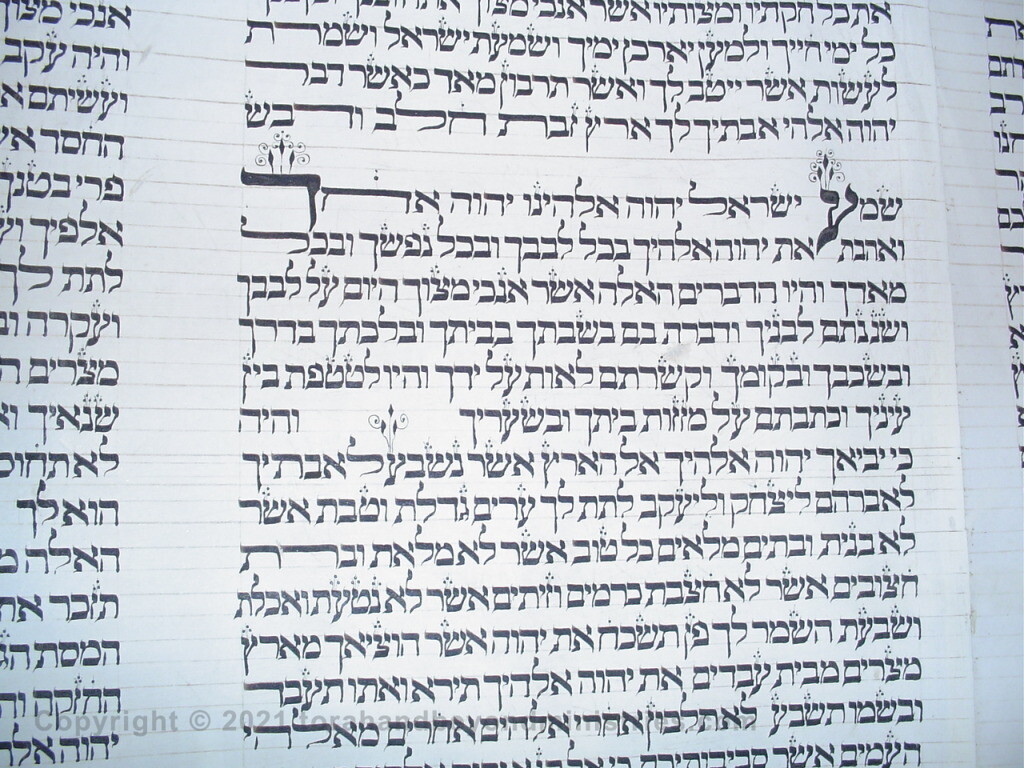 את כל חקתיו ומצותיו אשר אנכי מצוך אתה ובנך ובן בנך
כל ימי חייך ולמען יארכן ימיך ושמעת ישראל ושמרת
לעשות אשר ייטב לך ואשר תרבון מאד כאשר דבר
יהוה אלהי אבתיך לך ארץ זבת חלב ודבש
שמע ישראל יהוה אלהינו יהוה אחד
ואהבת את יהוה אלהיך בכל לבבך ובכל נפשך ובכל
מאדך והיו הדברים האלה אשר אנכי מצוך היום על לבבך
ושננתם לבניך ודברת בם בשבתך בביתך ובלכתך בדרך
ובשכבך ובקומך וקשרתם לאות על ידך והיו לטטפת בין
עיניך וכתבתם על מזזות ביתך ובשעריך והיה
כי יביאך יהוה אלהיך אל הארץ אשר נשבע לאבתיך
לאברהם ליצחק וליעקב לתת לך ערים גדלת וטבת אשר
לא בנית ובתים מלאים כל טוב אשר לא מלאת וברת
חצובים אשר לא חצבת כרמים וזיתים אשר לא נטעת ואכלת
ושבעת השמר לך פן תשכח את יהוה אשר הוציאך מארץ
מצרים מבית עבדים את יהוה אלהיך תירא ואתו תעבד
ובשמו תשבע לא תלכון אחרי אלהים אחרים מאלהי
העמים אשר סביבותיכם כי אל קנא
אנכי מצוך
והיה עקב
ועשיתם
החסד
פרי בטנך
אלפיך
לתת לך
ועקרה
מצרים
שנאיך
לא תחוס
הוא לך
האלה
תזכר את
המסת
החזקה
יהוה
Copyright © 2021 torahandbeyondministries.com